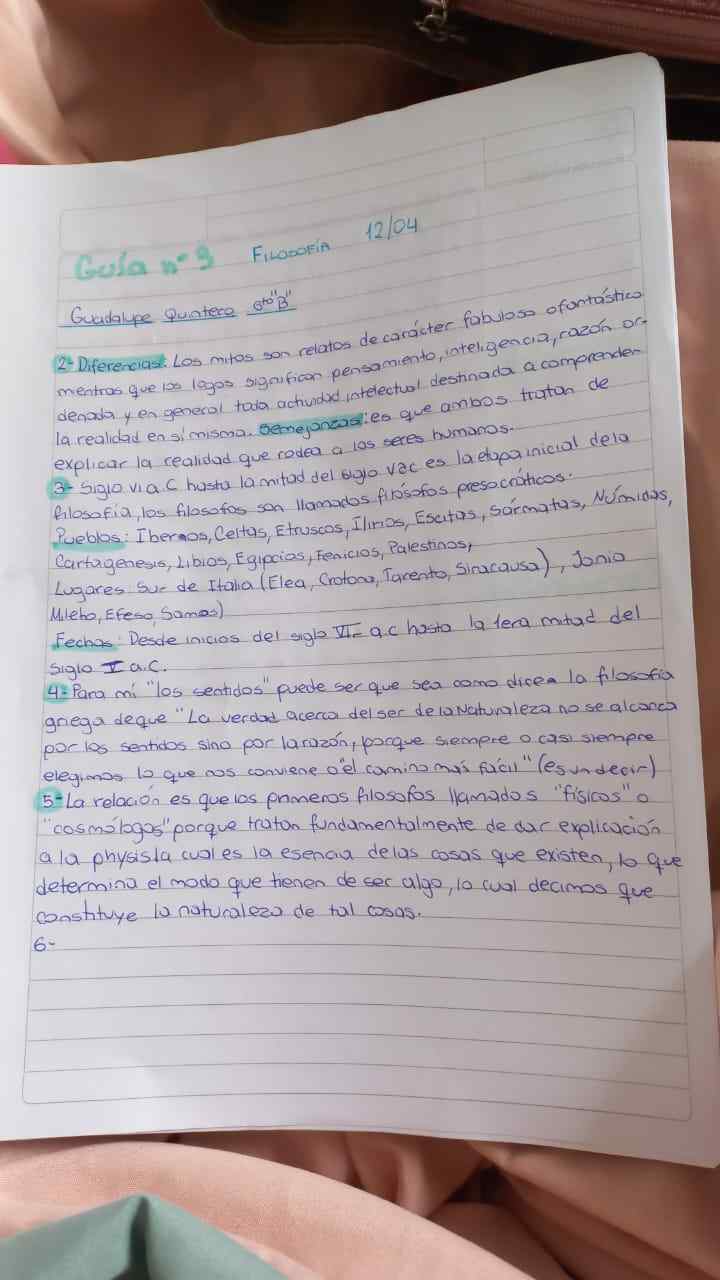 Guía nº 9 FILOSOFÍA 12/04
Guadalupe Quintero 6to"B"
2-Diferencias: Los mitos son relatos de carácter fabuloso o fantástico
mentras que los logos significan pensamiento, inteligencia, razón or-
denada y en general toda actividad intelectual destinada a comprender
la realidad en sí misma. Semejanzas: es que ambos tratan de
explicar la realidad que rodea a los seres humanos.
3- Siglo VI a.C hasta la mitad del siglo V a c es la etapa inicial de la
filosofía, los filosofos son llamados filósofos presocráticos.
Pueblos: Iberos, Celtas, Etruscos, Ilirios, Escitas, Sármatas, Númidas,
Cartagenesis, Libios, Egipcios, Fenicios, Palestinos,
Lugares Sur de Italia (Elea, Crotona, Tarento, Siracausa), Jonia
Mileto, Efeso, Samos)
Fechas: Desde inicios del siglo VI a.c hasta la 1era mitad del
siglo V a.C.
4- Para mí "los sentidos" puede ser que sea como dicen la filosofía
griega de que "La verdad acerca del ser de la Naturaleza no se alcanza
por los sentidos sino por la razón, porque siempre o casi siempre
elegimos lo que nos conviene o "el camino mas fácil" (es un decir)
5- La relación es que los primeros filosofos llamados "físicos" o
"cosmólogos" porque tratan fundamentalmente de dar explicación
a la physis la cual es la esencia de las cosas que existen, lo que
determina el modo que tienen de ser algo, lo cual decimos que
constituye la naturaleza de tal cosas.
6-